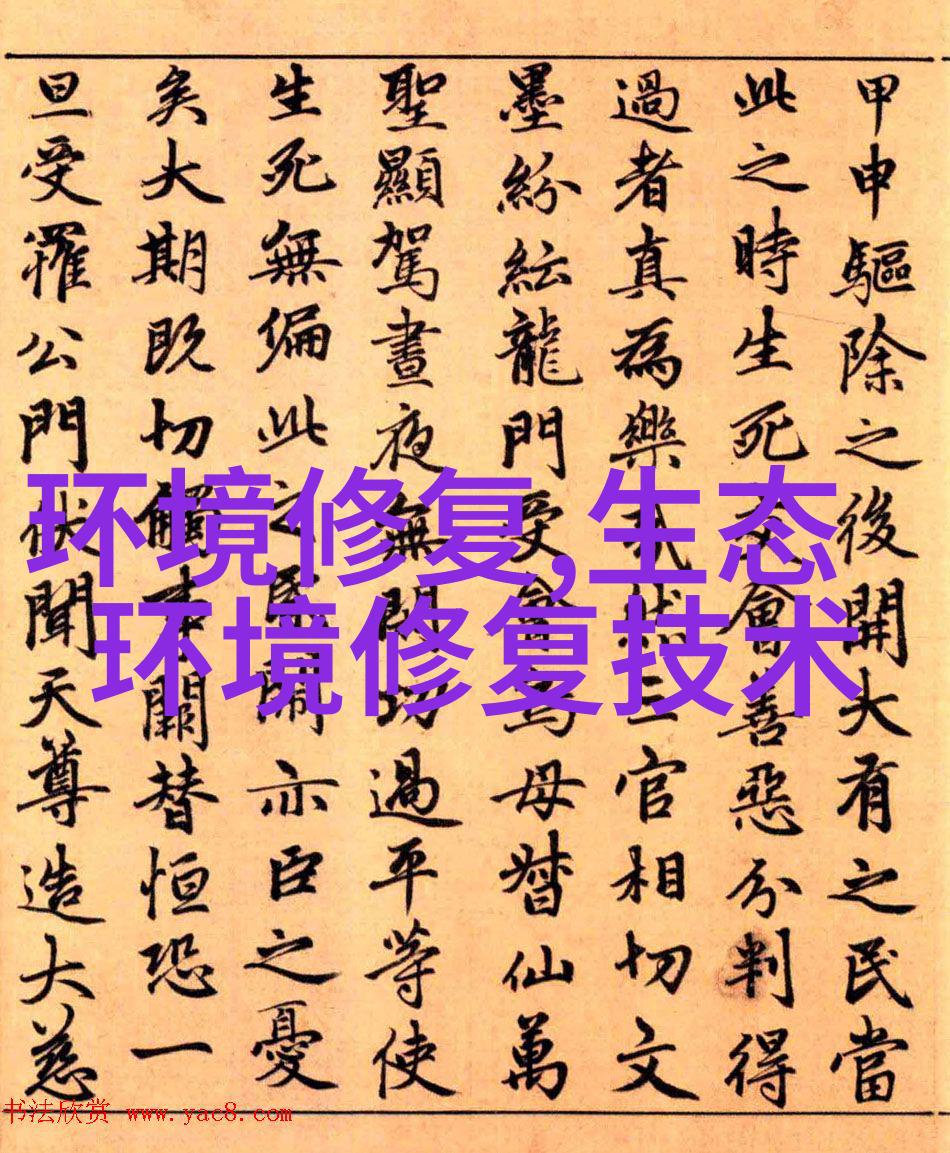 甲申驅除之後開大有之民當
此之時生死會善惡分判得
過者真為樂三官相切文
墨紛紜龍門受會為母督仙萬
聖顯駕晝夜無閑功過平等使
生死無偏此之關亦臣之憂
矣大期既切觸事闕替恒恐一
旦受罹公門伏聞天尊造大慈
环境修复,生态
环境修复技术
书法欣赏 www.yac8.com